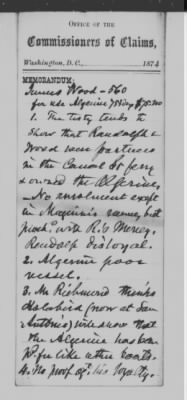 OFFICE OF THE
Commissioners of Claims,
Washington, D. C., 1874
MEMORANDUM:
James Wood - 560
for use Algerine
1. The testy tends to
show that Randolph &
Wood were partners
in the Canal St ferry
& owned the Algerine.
No enrolment except
in name, but
with R. & Mercy.
Randolph disloyal.
2. Algerine poor
vessel.
3. Mr Richmond thinks
(now at San
Antonio) will show that
the Algerine has been
pd for like other boats.
4. No proof of his loyalty.